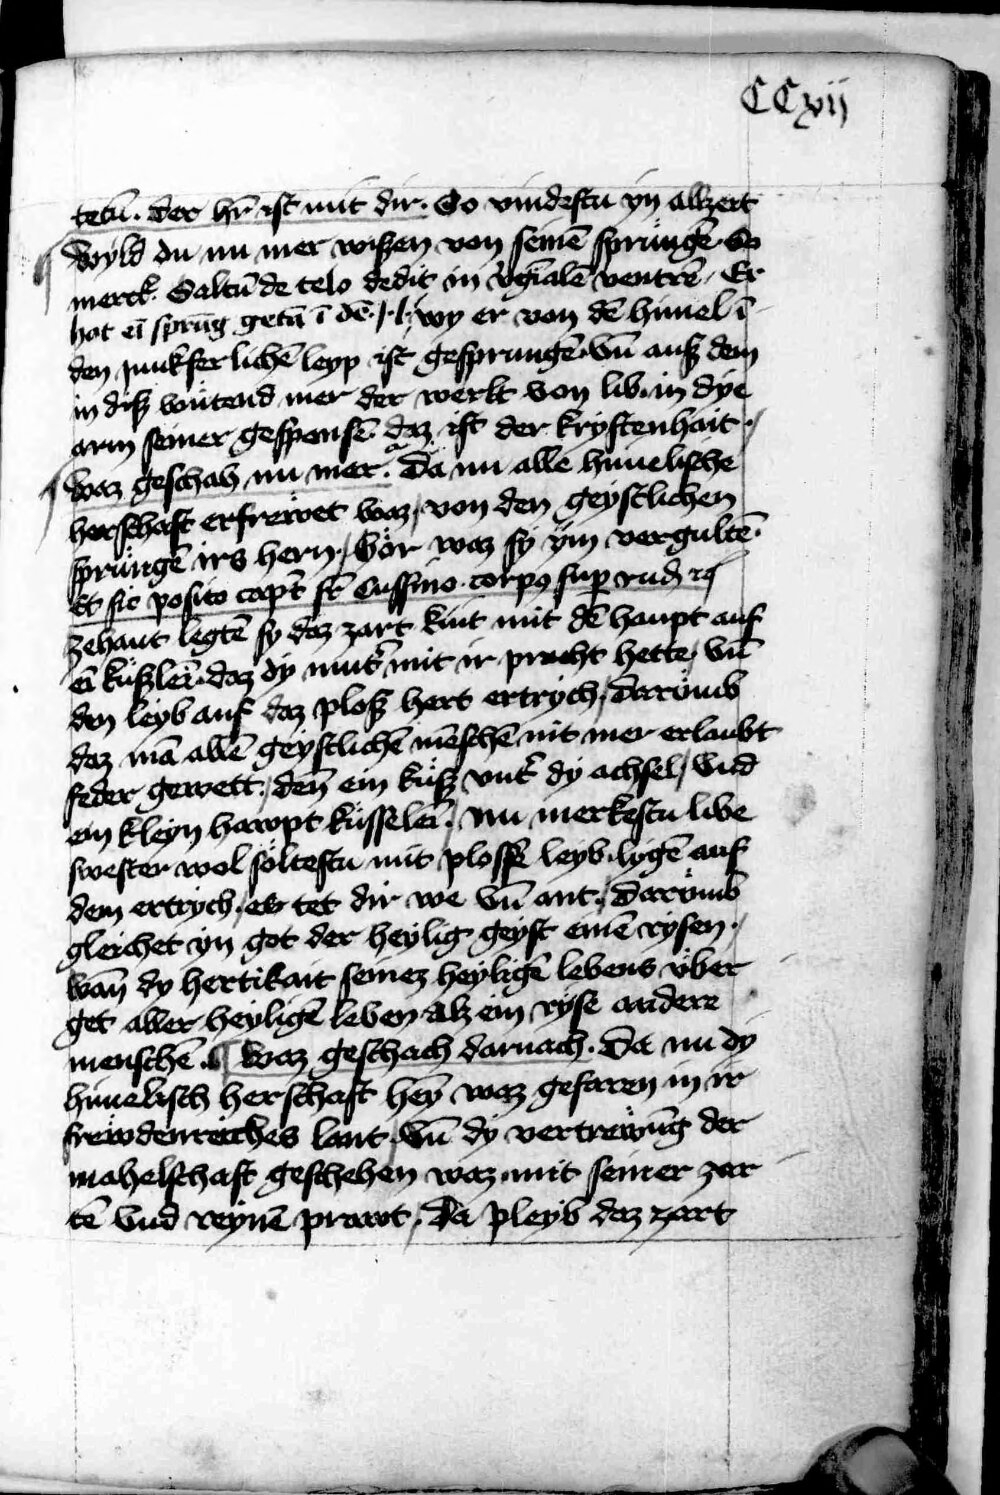 CCxvij
tecū. der hr̄ ist mit dir. So vindestu yn allzeit
Wyld du nu mer wiszen von seinē sprüngē So
merck. Saltū de celo dedit in v̓gīalē ventrē, Er
hot eī sprūg getā ī dē wy er von dē himel ī
den junkferlichē leyp ist gesprungē. Vn̄ ausz dem
in disz wütend mer der werlt von lib. in dye
arm seiner gesponsē. daz ist der krystenhait.
Waz geschah nu mer. Da nu alle himelische
herschaft erfrewet waz, von den geystlichen
sprüngē irs hern, Hör waz sy ym vergultē.
Et sic posito cap̄t
zehant legtē sy daz zart kint mit dē haupt auf
eī küszleī. daz dy mut̓ mit ir procht hette, Vn̄
den leyb auf daz plosz hert ertrych, darümb
daz mā allē geystlichē mēschē nit mer erlaubt
feder gewett, den̄ ein küsz vnt̓ dy achsel, Vnd
ein kleyn hawpt küsseleī. nu merkestu libe
swester wol söltestu mit plossē leyb. lygē auf
dem ertrych, es tet dir we vn̄ ant. Darümb
gleichet yn got der heylig geyst einē rysen.
Wan̄ dy hertikait seinez heyligē lebens über
get aller heyligē leben alz ein ryse andere
menschē. ¶ Waz geschach darnach. Da nu dy
himelisch herschaft hey̅ waz gefaren in ir
frewdenreiches lant, Vn̄ dy vertrewūg der
mahelschaft geschehen waz mit seiner zar
tē Vnd reynē prawt, Da pleyb daz zart